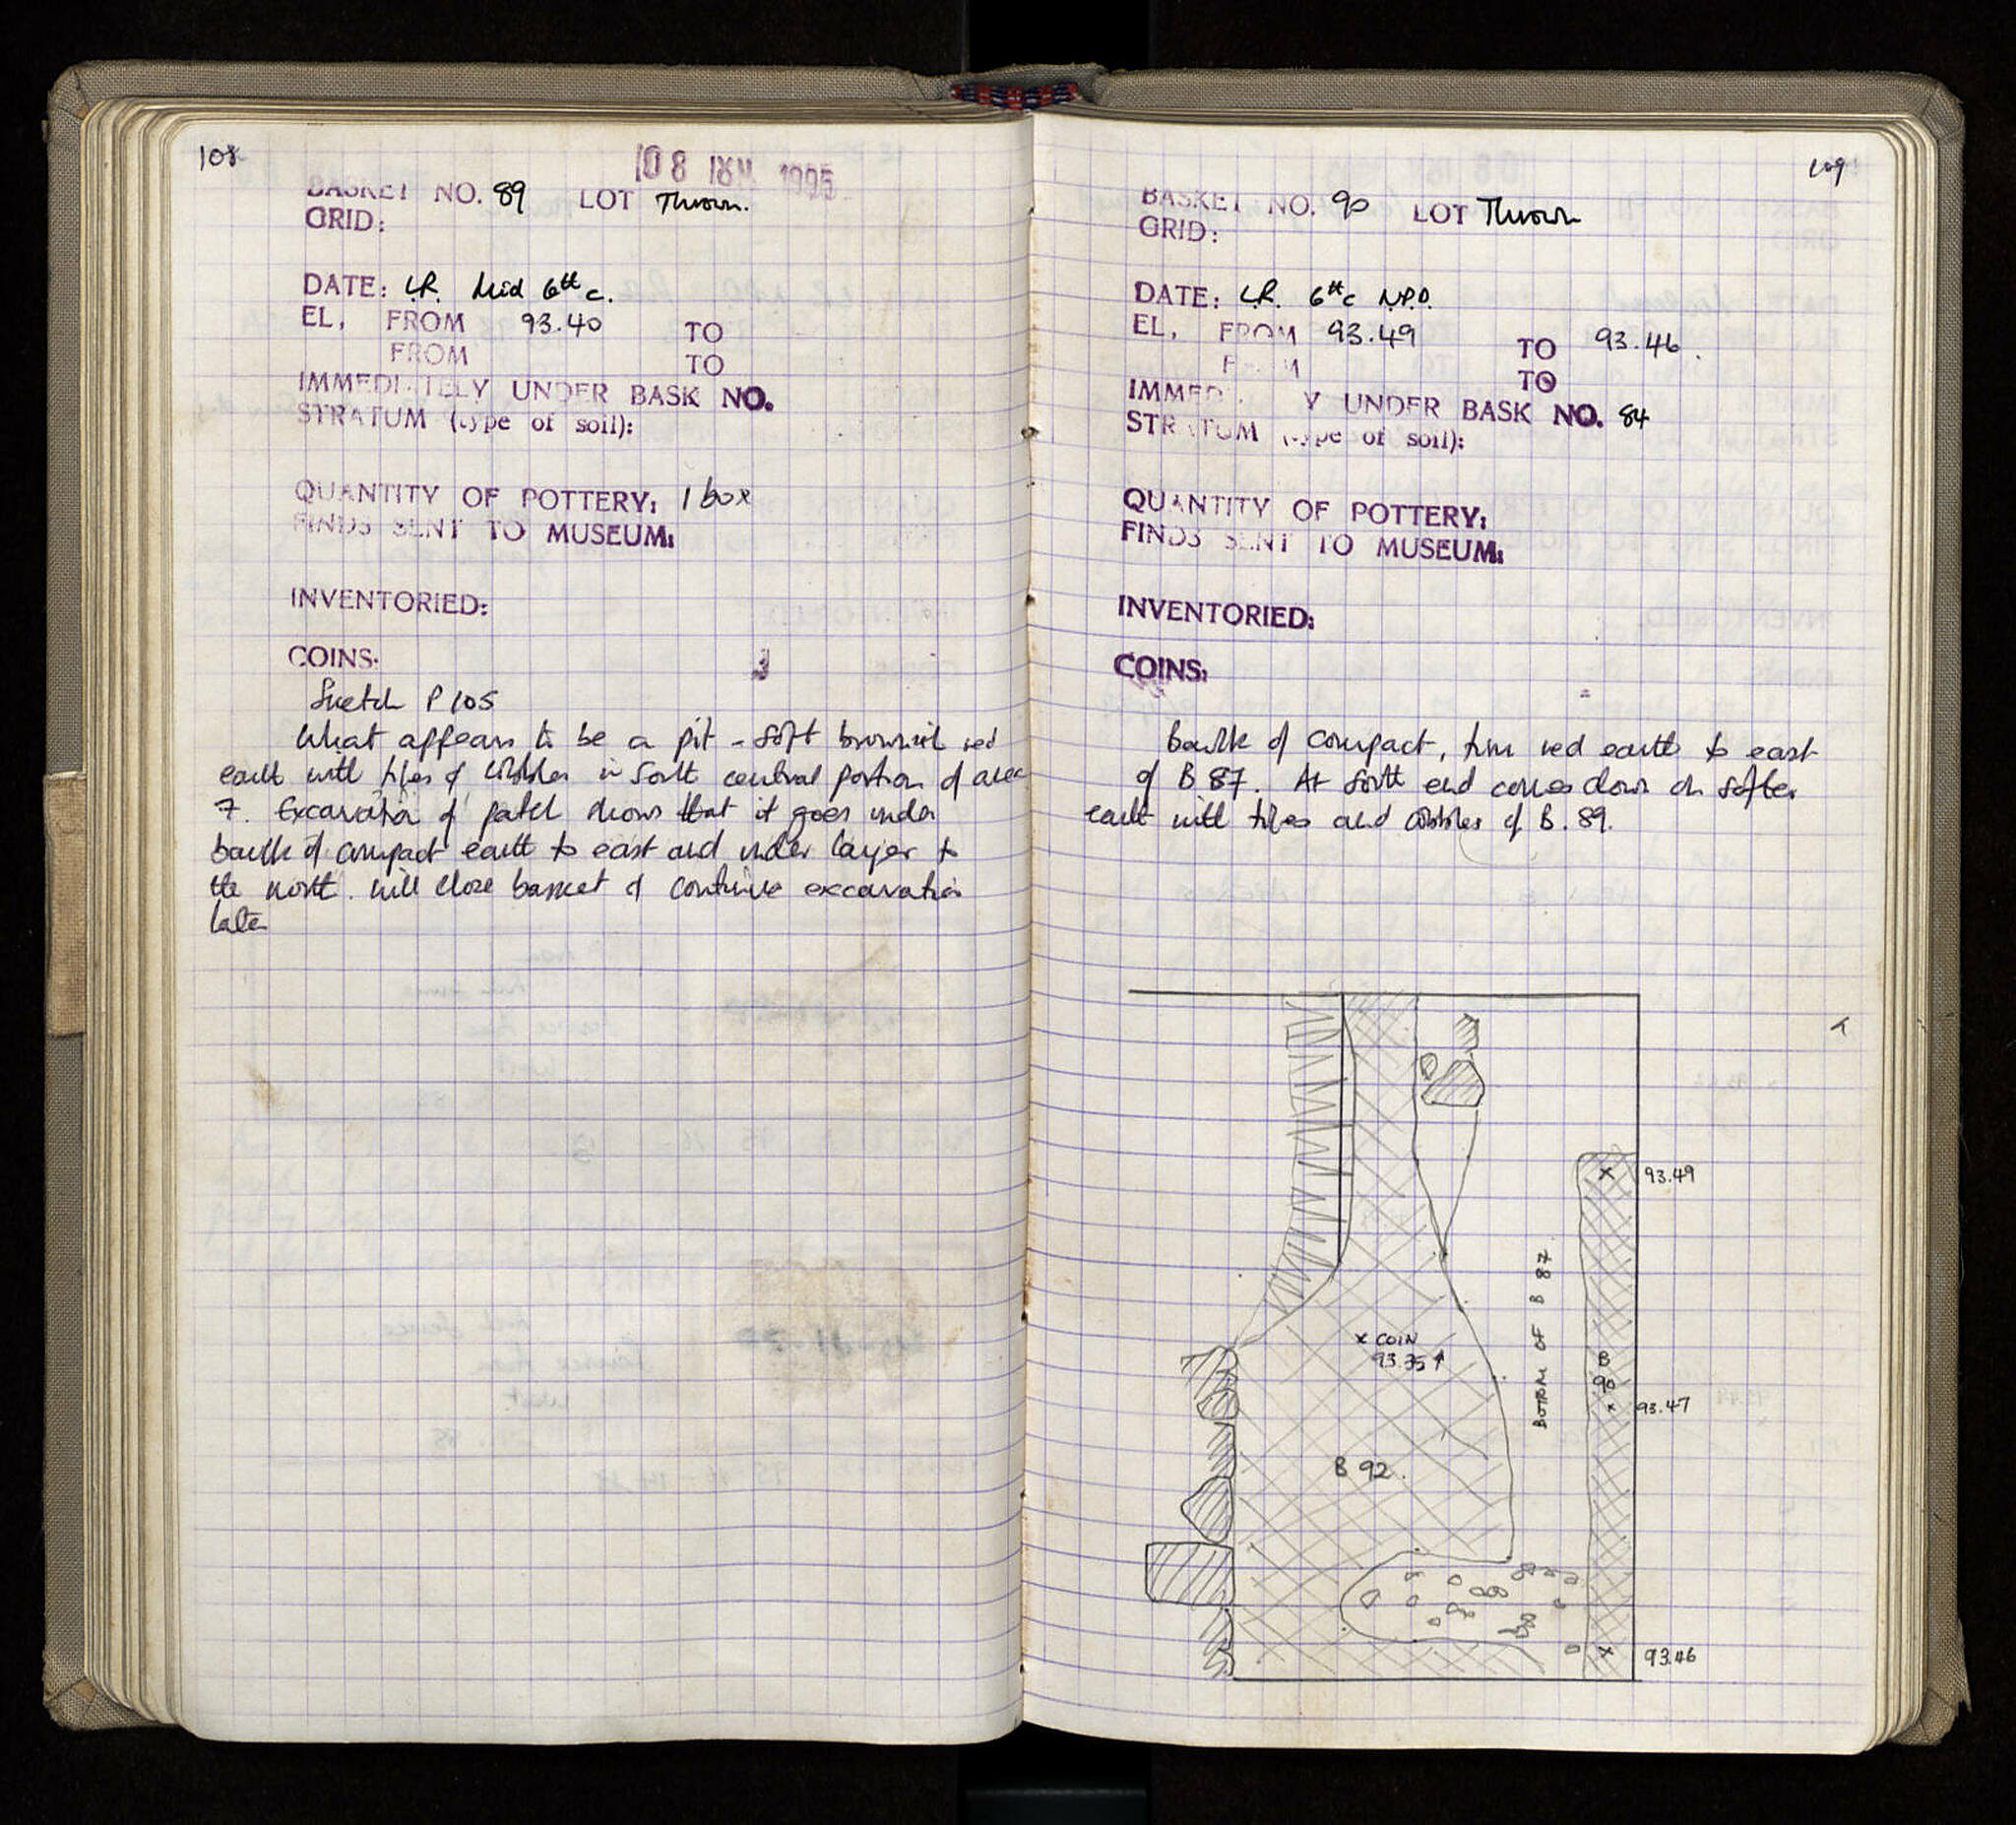 108
108 ΙΟΥΝ. 1995
BASKET NO. 89 LOT Thrown.
GRID:
DATE: L.R. Mid 6th c.
EL, FROM 93.40 TO
FROM TO
IMMEDIATELY UNDER BASK NO.
STRATUM (type of soil):
QUANTITY OF POTTERY: 1 box
FINDS SENT TO MUSEUM:
INVENTORIED:
COINS:
Sketch P 105
What appears to be a pit - soft brownish red
earth with tiles & cobbles in south central portion of area
7. Excavation of patch shows that it goes under
baulk of compact earth to east and under layer to
the north. Will close basket & continue excavation
later
109
BASKET NO. 90 LOT Thrown
GRID:
DATE: L.R. 6th c N.P.D.
EL, FROM 93.49 TO 93.46.
FROM TO
IMMED Y UNDER BASK NO. 84
STRATUM (type of soil):
QUANTITY OF POTTERY:
FINDS SENT TO MUSEUM:
INVENTORIED:
COINS:
baulk of compact, firm red earth to east
of B 87. At south end comes down on softer
earth with tiles and cobbles of B. 89.
x 93.49
BOTTOM OF B 87
x COIN
93.35 ↑
B
90
x 93.47
B 92.
x 93.46